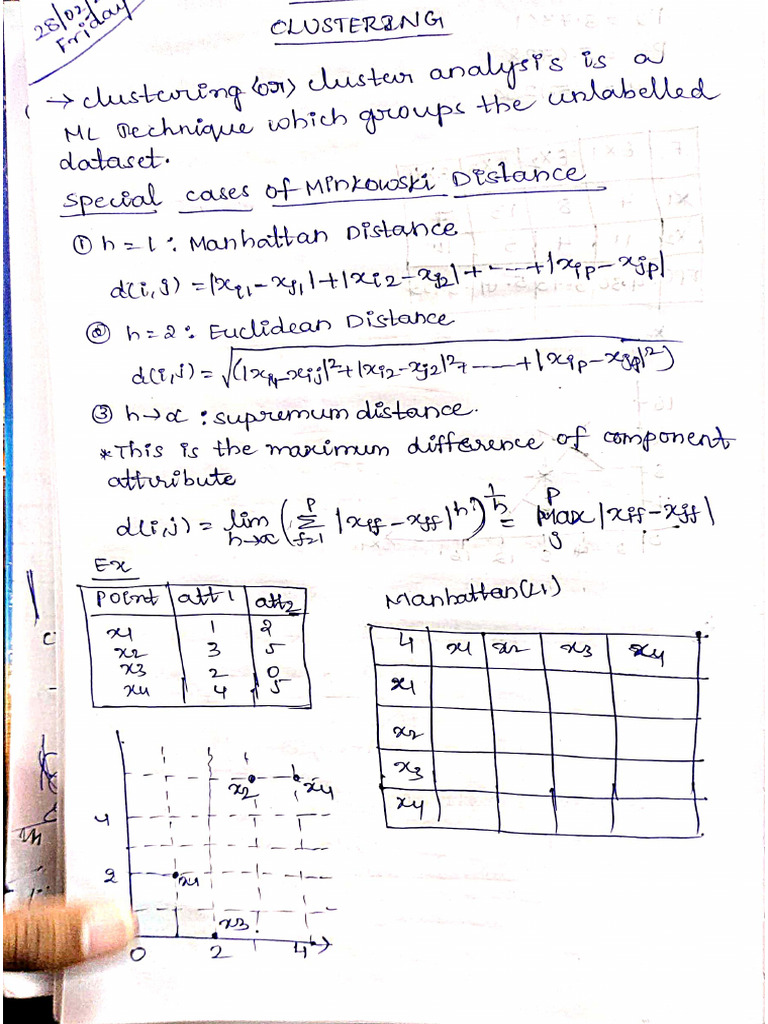 28/02/
Friday
CLUSTERING
→ clustering (or) cluster analysis is a
ML Technique which groups the unlabelled
dataset.
Special cases of Minkowski Distance
① h=1: Manhattan Distance
d(i,j) = |xi1 - xj1| + |xi2 - xj2| + ---- + |xip - xjp|
② h=2: Euclidean Distance
d(i,j) = √(|xi1 - xij|² + |xi2 - xj2|² + ---- + |xip - xjp|²)
③ h→∝ : supremum distance.
* This is the maximum difference of component
attribute
d(i,j) = lim h→∝ (Σ f=1 p |xif - xjf|^h)^1/h = p Max j |xif - xjf|
Ex
Manhattan(L1)
Point att1 att2
x1 1 2
x2 3 5
x3 2 0
x4 4 5
4 x1 x2 x3 x4
x1
x2
x3
x4
x2 x4
4
2 x1
x3
0 2 4